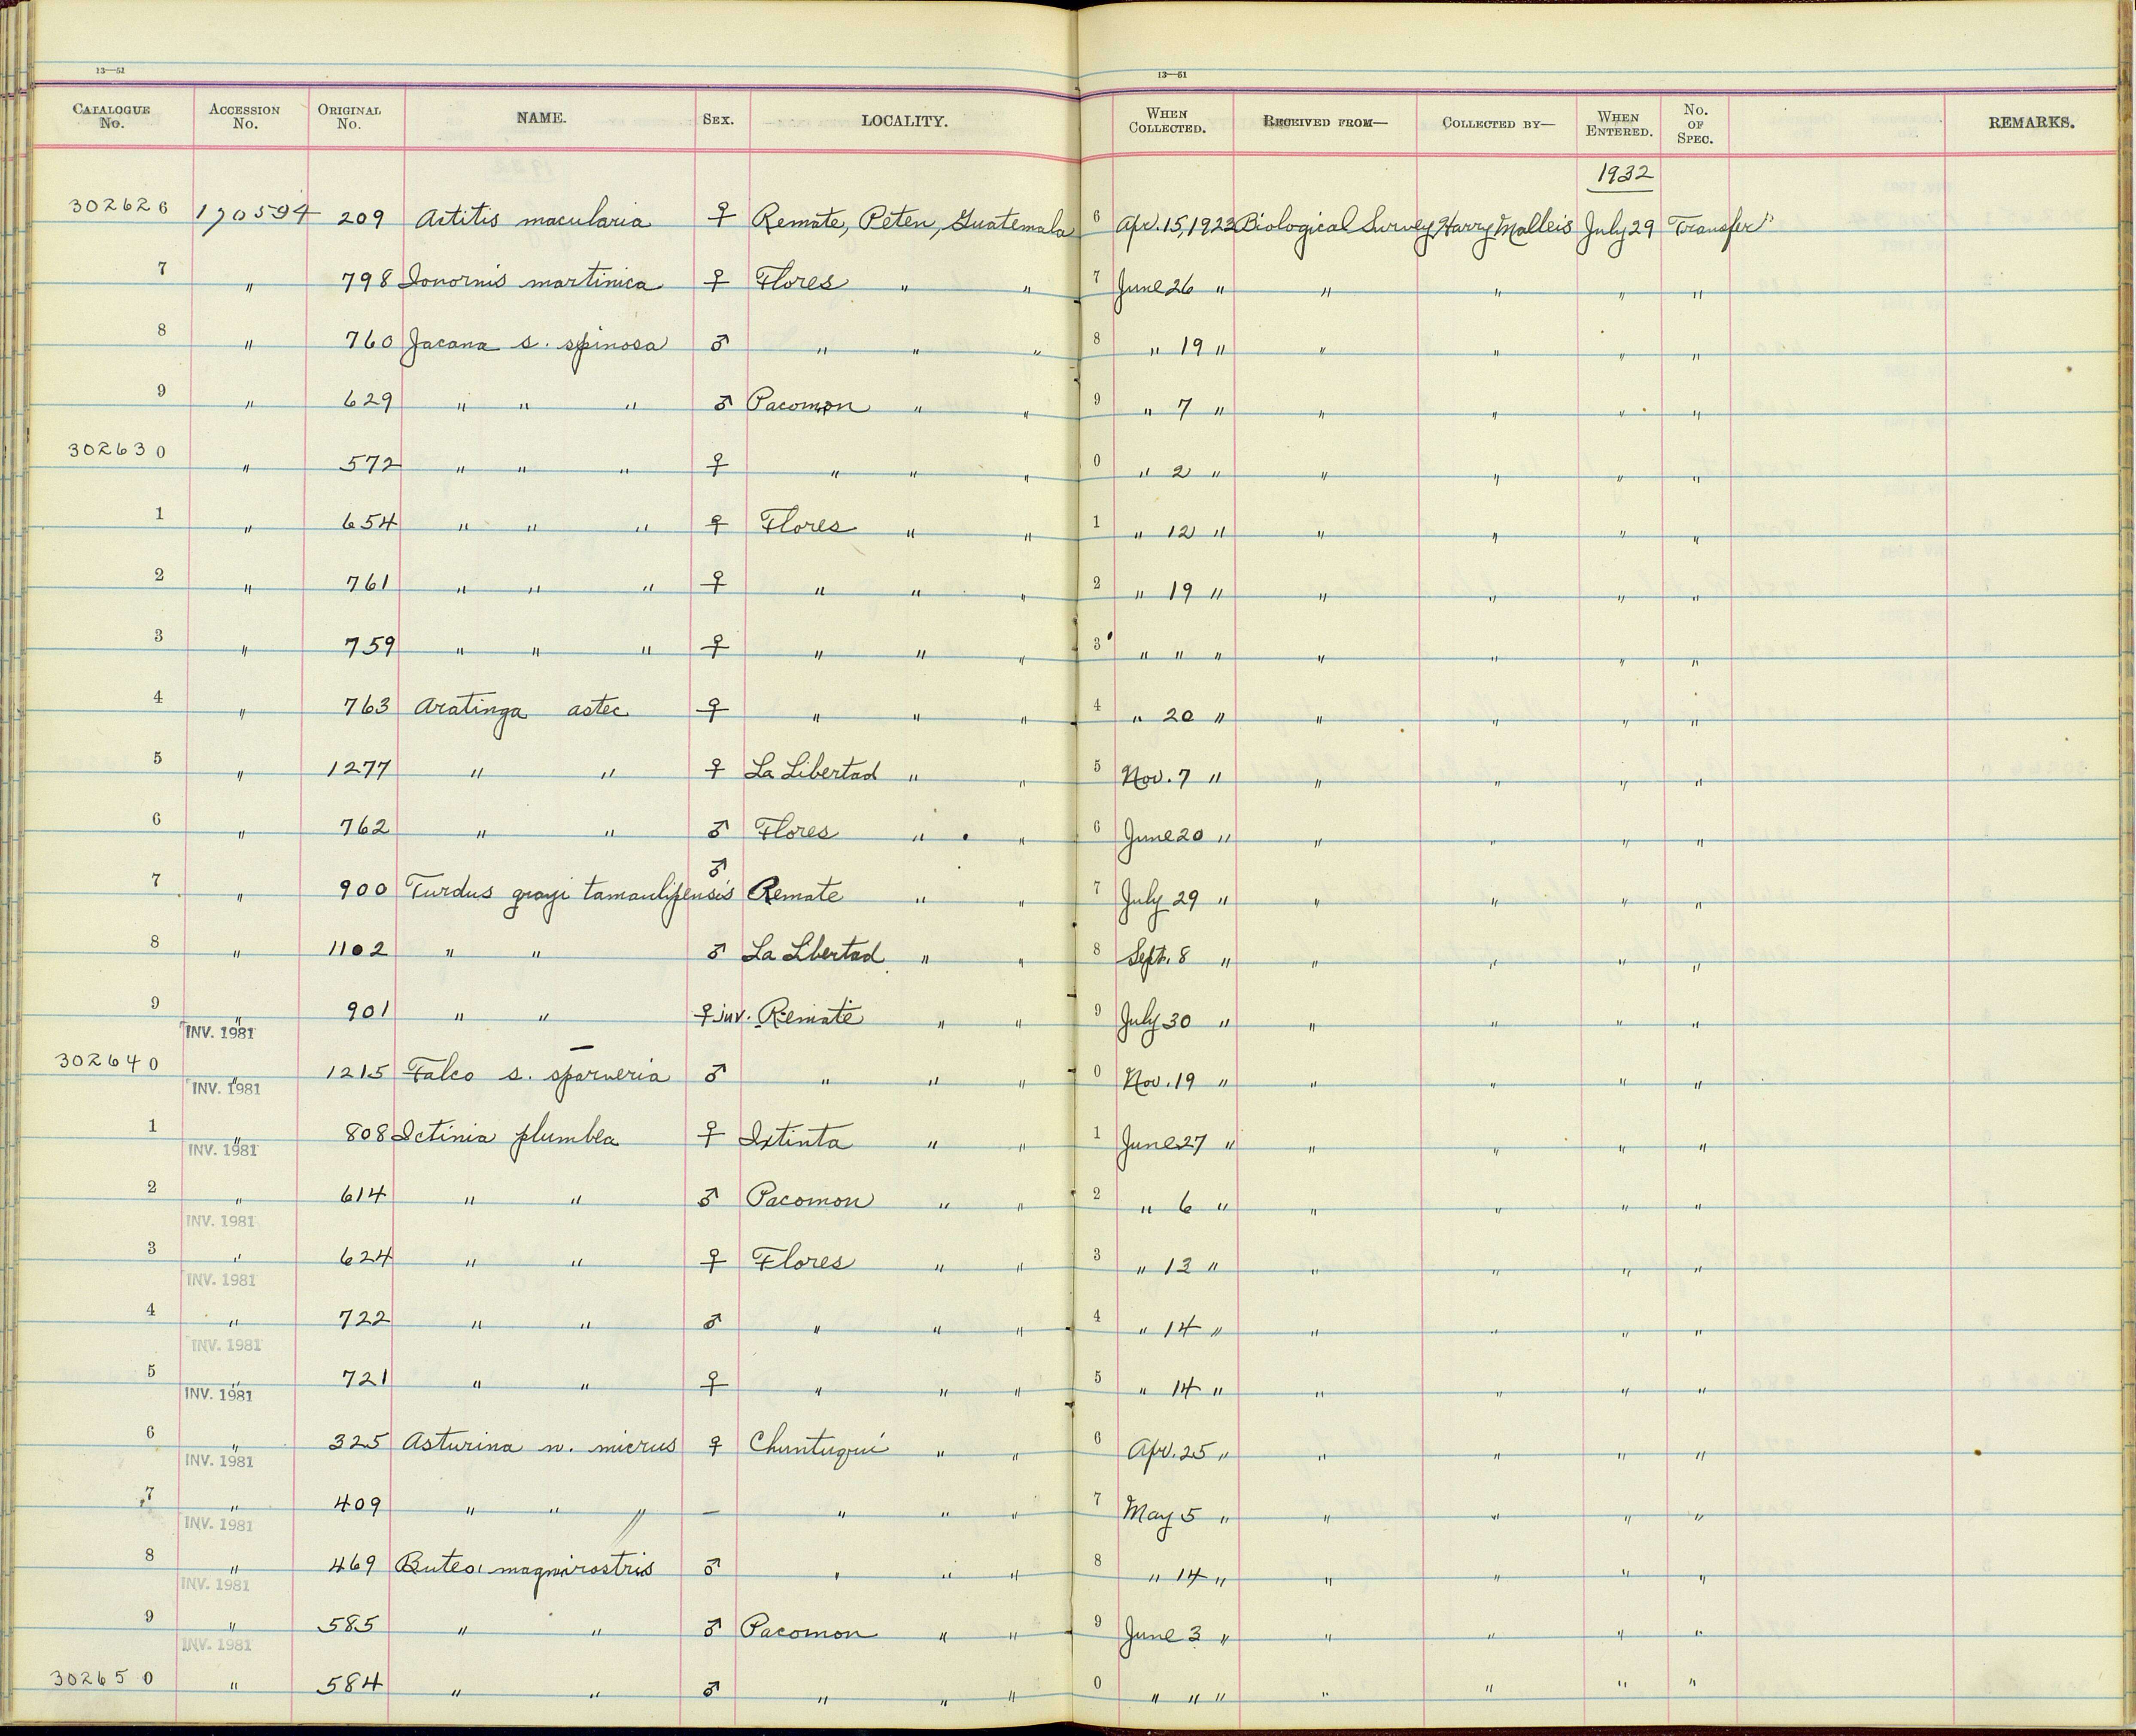 13—51 13—51
CATALOGUE No. ACCESSION No. ORIGINAL No. NAME. SEX. LOCALITY. WHEN COLLECTED. RECEIVED FROM— COLLECTED BY— WHEN ENTERED. No. OF SPEC. REMARKS.
1932
302626 170594 209 Actitis macularia ♀ Remate, Peten, Guatemala 6 Apr. 15, 1923 Biological Survey Harry Malleis July 29 Transfer
7 " 798 Ionornis martinica ♀ Flores " " 7 June 26 " " " " "
8 " 760 Jacana s. spinosa ♂ " " " 8 " 19 " " " " "
9 " 629 " " " ♂ Pacomon " " 9 " 7 " " " " "
302630 " 572 " " " ♀ " " " 0 " 2 " " " " "
1 " 654 " " " ♀ Flores " " 1 " 12 " " " " "
2 " 761 " " " ♀ " " " 2 " 19 " " " " "
3 " 759 " " " ♀ " " " 3 " " " " " " "
4 " 763 Aratinga astec ♀ " " " 4 " 20 " " " " "
5 " 1277 " " ♀ La Libertad " " 5 Nov. 7 " " " " "
6 " 762 " " ♂ Flores " " 6 June 20 " " " " "
7 " 900 Turdus grayi tamaulipensis ♂ Remate " " 7 July 29 " " " " "
8 " 1102 " " ♂ La Libertad " " 8 Sept. 8 " " " " "
9 " INV. 1981 901 " " ♀ juv. Remate " " 9 July 30 " " " " "
302640 " INV. 1981 1215 Falco s. sparveria ♂ " " " 0 Nov. 19 " " " " "
1 " INV. 1981 808 Ictinia plumbea ♀ Ixtinta " " 1 June 27 " " " " "
2 " INV. 1981 614 " " ♂ Pacomon " " 2 " 6 " " " " "
3 " INV. 1981 624 " " ♀ Flores " " 3 " 13 " " " " "
4 " INV. 1981 722 " " ♂ " " " 4 " 14 " " " " "
5 " INV. 1981 721 " " ♀ " " " 5 " 14 " " " " "
6 " INV. 1981 325 Asturina n. micrus ♀ Chuntuqui " " 6 Apr. 25 " " " " "
7 " INV. 1981 409 " " " — " " " 7 May 5 " " " " "
8 " INV. 1981 469 Buteo magnirostris ♂ " " " 8 " 14 " " " " "
9 " INV. 1981 585 " " ♂ Pacomon " " 9 June 3 " " " " "
302650 " 584 " " ♂ " " " 0 " " " " " " "